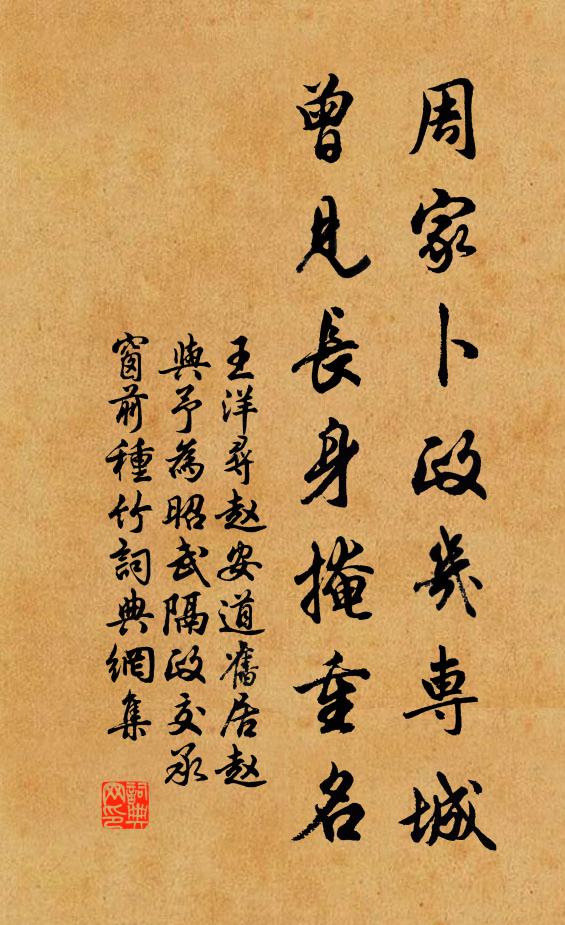 周家卜政幾專城
曾見長身掩重名
王洋尋赵安道舊居赵
與予為昭武隔政交承
窗前種竹詞典網集
詞典
网印